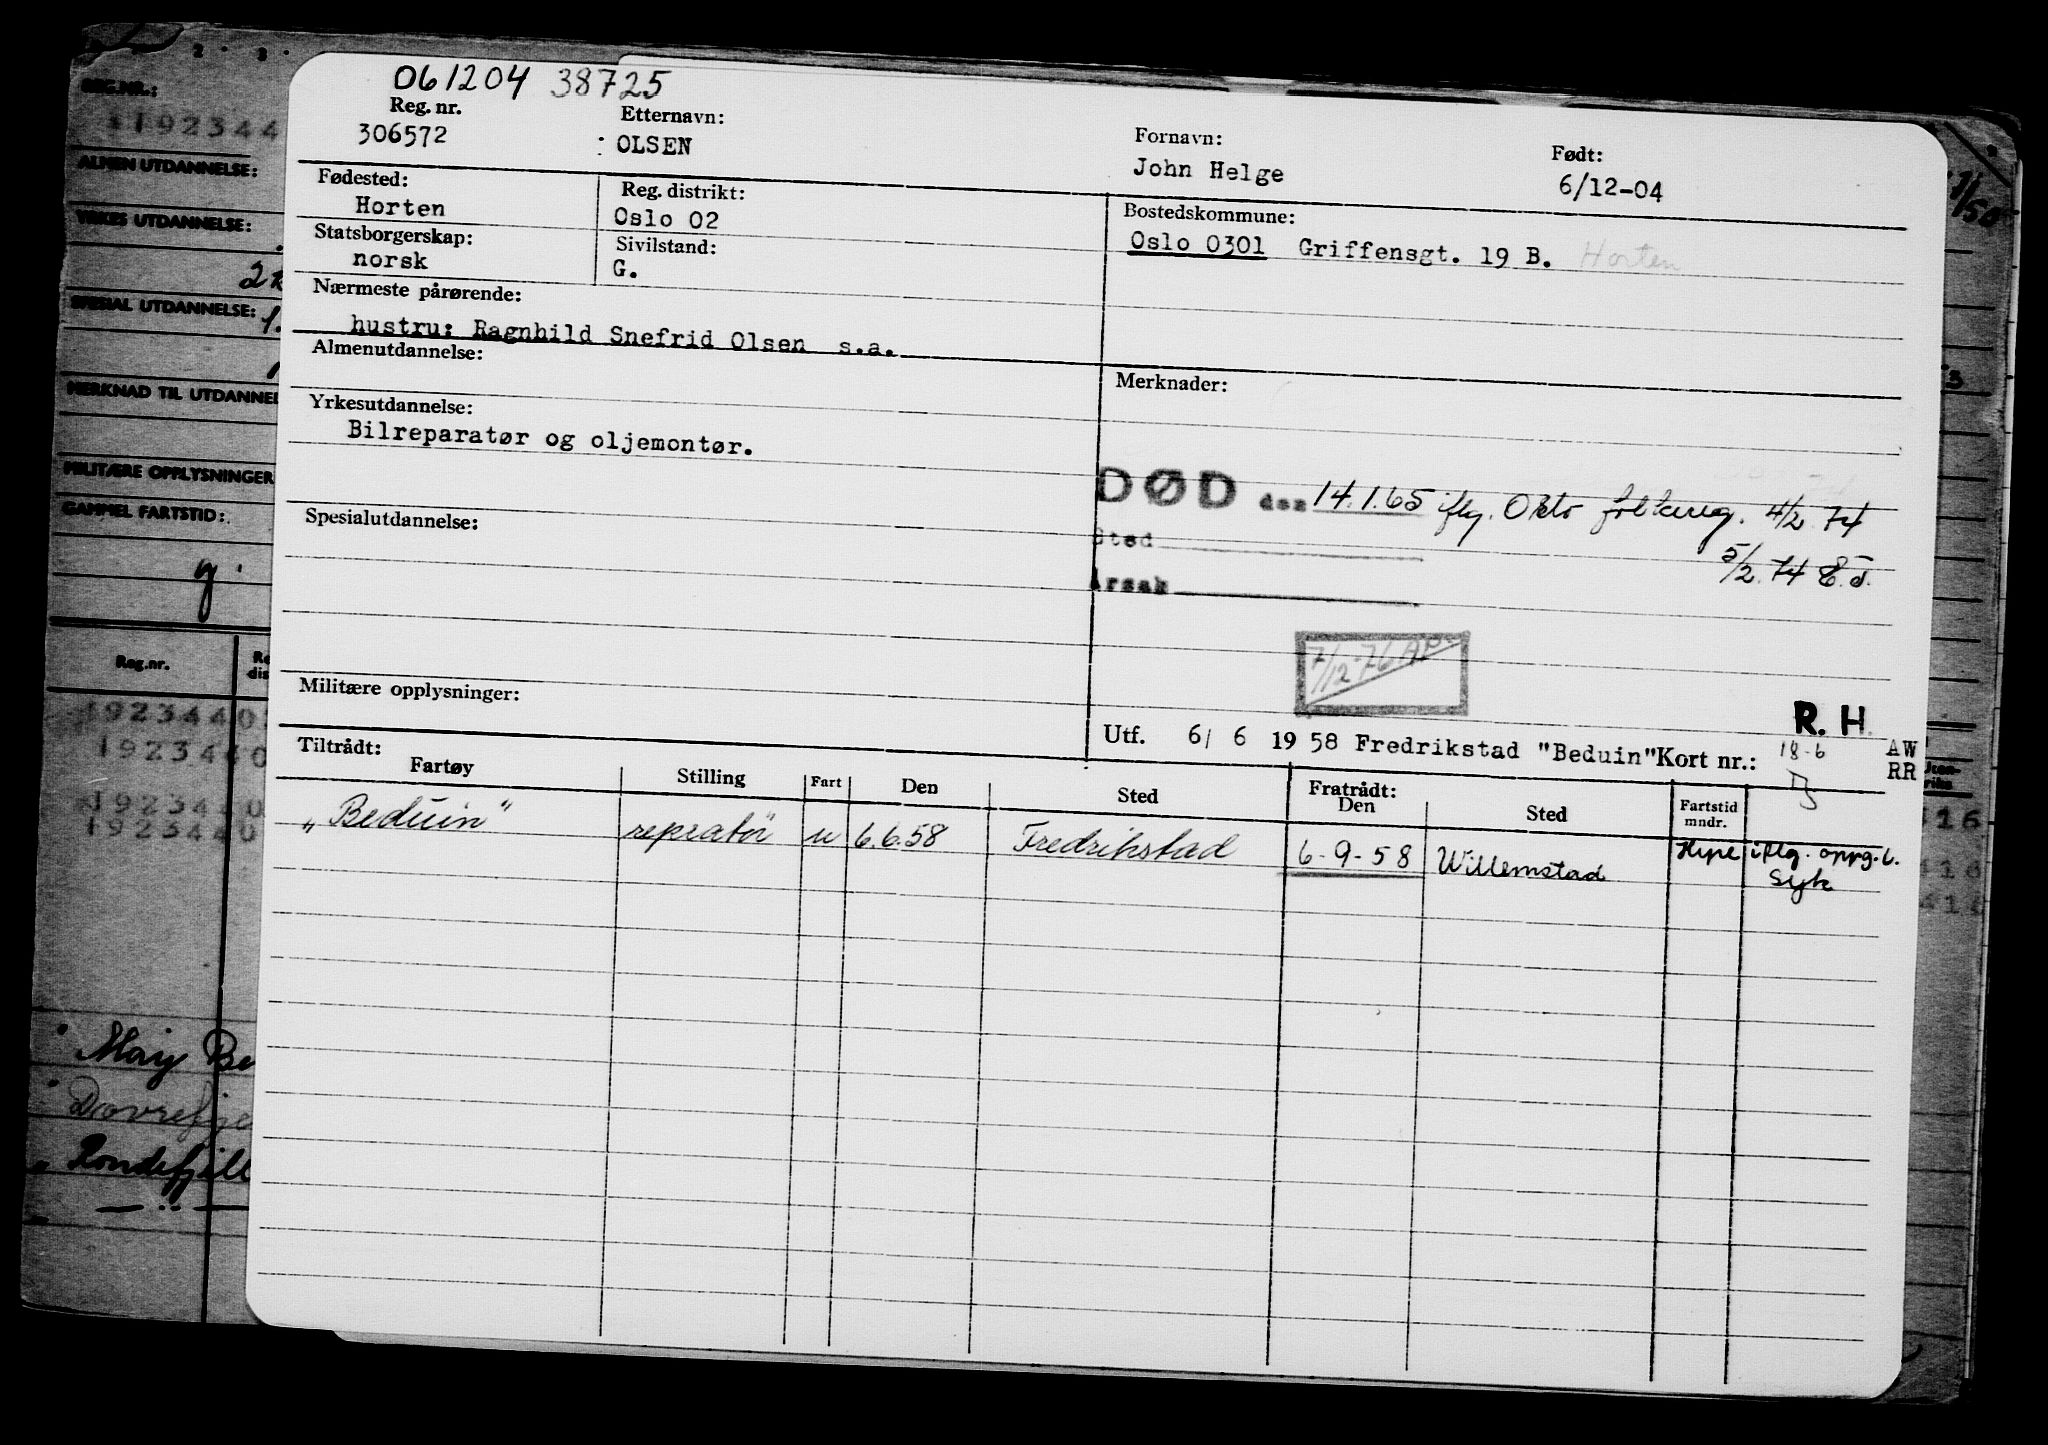 061204 38725
Reg. nr.
306572
Etternavn:
: OLSEN
Fornavn:
John Helge
Født:
6/12-04
Fødested:
Horten
Reg. distrikt:
Oslo 02
Bostedskommune:
Oslo 0301 Griffensgt. 19 B. Horten
Statsborgerskap:
norsk
Sivilstand:
G.
Nærmeste pårørende:
hustru: Ragnhild Snefrid Olsen s.a.
Almenutdannelse:
Merknader:
Yrkesutdannelse:
Bilreparatør og oljemontør.
DØD den 14.1.65 iflg. Oslo folkereg. 4/2 74
5/2. 74
Sted
Årsak
Spesialutdannelse:
7/12-76
Militære opplysninger:
R. H.
Utf. 6/ 6 1958 Fredrikstad "Beduin" Kort nr.: 18-6
AW
RR
Tiltrådt:
Fartøy Stilling Fart Den Sted
Fratrådt:
Den Sted Fartstid mndr.
"Beduin" repratør u 6.6.58 Fredrikstad 6-9-58 Willemstad Hyre iflg. oppg. b.
Syk
REG.NR.:
192344
ALMEN UTDANNELSE:
YRKES UTDANNELSE:
SPESIAL UTDANNELSE:
MERKNAD TIL UTDANNEL
MILITÆRE OPPLYSNINGER
GAMMEL FARTSTID:
g.
Reg.nr.
Re
dis
1923440
1923440
1923440
1923440
May Be
Dovrefje
Rondefjell
— „ —
416
416
416